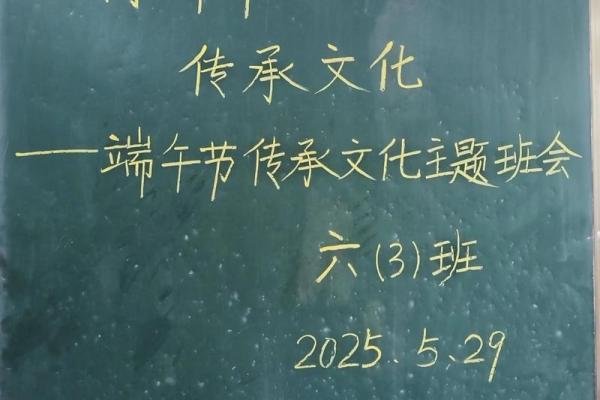 传承文化
——端午节传承文化主题班会
六(3)班
2025.5.29